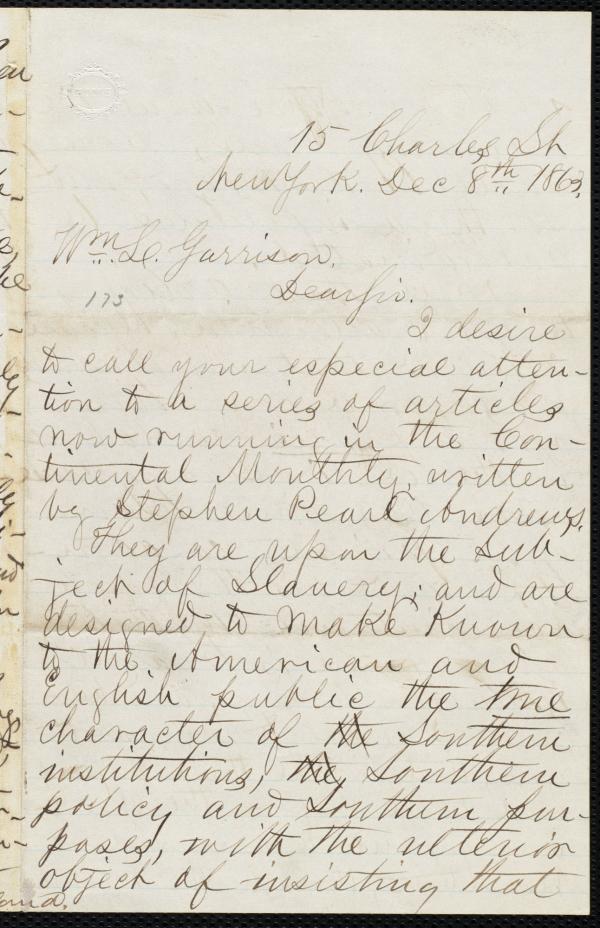 15 Charles St
New York. Dec 8th 1863.
Wm. L. Garrison.
173
Dear Sir.
I desire
to call your especial atten-
tion to a series of articles
now running in the Con-
tinental Monthly, written
by Stephen Pearl Andrews.
They are upon the sub-
ject of Slavery; and are
designed to make known
to the American and
English public the true
character of the Southern
institutions, the Southern
policy and Southern pur-
poses, with the ulterior
object of insisting that